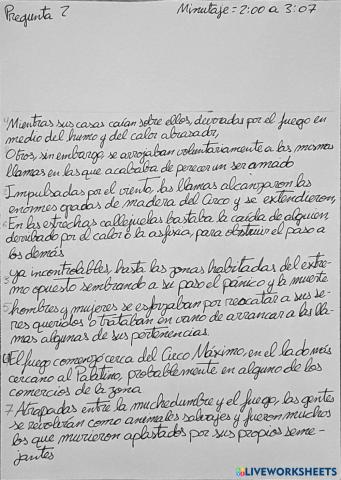 Pregunta 2 Minutaje = 2:00 a 3:07
Mientras sus casas caían sobre ellos, devoradas por el fuego en
medio del humo y del calor abrasador,
Otros, sin embargo, se arrojaban voluntariamente a las mismas
llamas en las que acababa de perecer un ser amado
Impulsadas por el viento, las llamas alcanzaron las
enormes gradas de madera del Circo y se extendieron,
En las estrechas callejuelas bastaba la caída de alguien,
derribado por el calor o la asfixia, para obstruir el paso a
los demás
ya incontrolables, hasta las zonas habitadas del extre-
mo opuesto sembrando a su paso el pánico y la muerte
hombres y mujeres se esforzaban por rescatar a sus se-
res queridos o trataban en vano de arrancar a las lla-
mas algunas de sus pertenencias.
El fuego comenzó cerca del Circo Máximo, en el lado más
cercano al Palatino, probablemente en alguno de los
comercios de la zona
7 Atrapadas entre la muchedumbre y el fuego, las gentes
se revolvían como animales salvajes y fueron muchos
los que murieron aplastados por sus propios seme-
jantes
LIVEWORKSHEETS